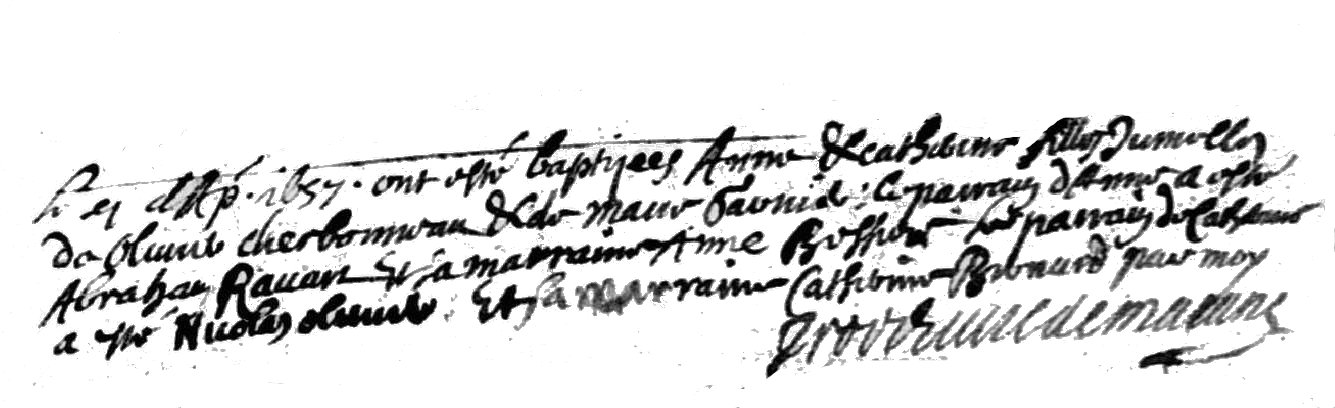 d'Ap. 1657. ont esté baptisees Anne & Catherine filles Jumelles
de Olivier Cherbonneau & de Marie Garnier: le parrain d'Anne a esté
Abraham Ravart Et sa marraine Anne le parrain de Catherine
a esté Nicolas Olivier Et sa marraine Catherine Brenard par moy